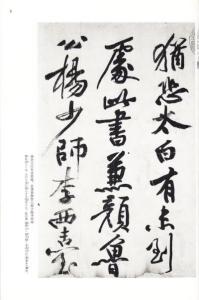 猶恐太白有未到
處此書兼顏魯
公楊少師李西臺